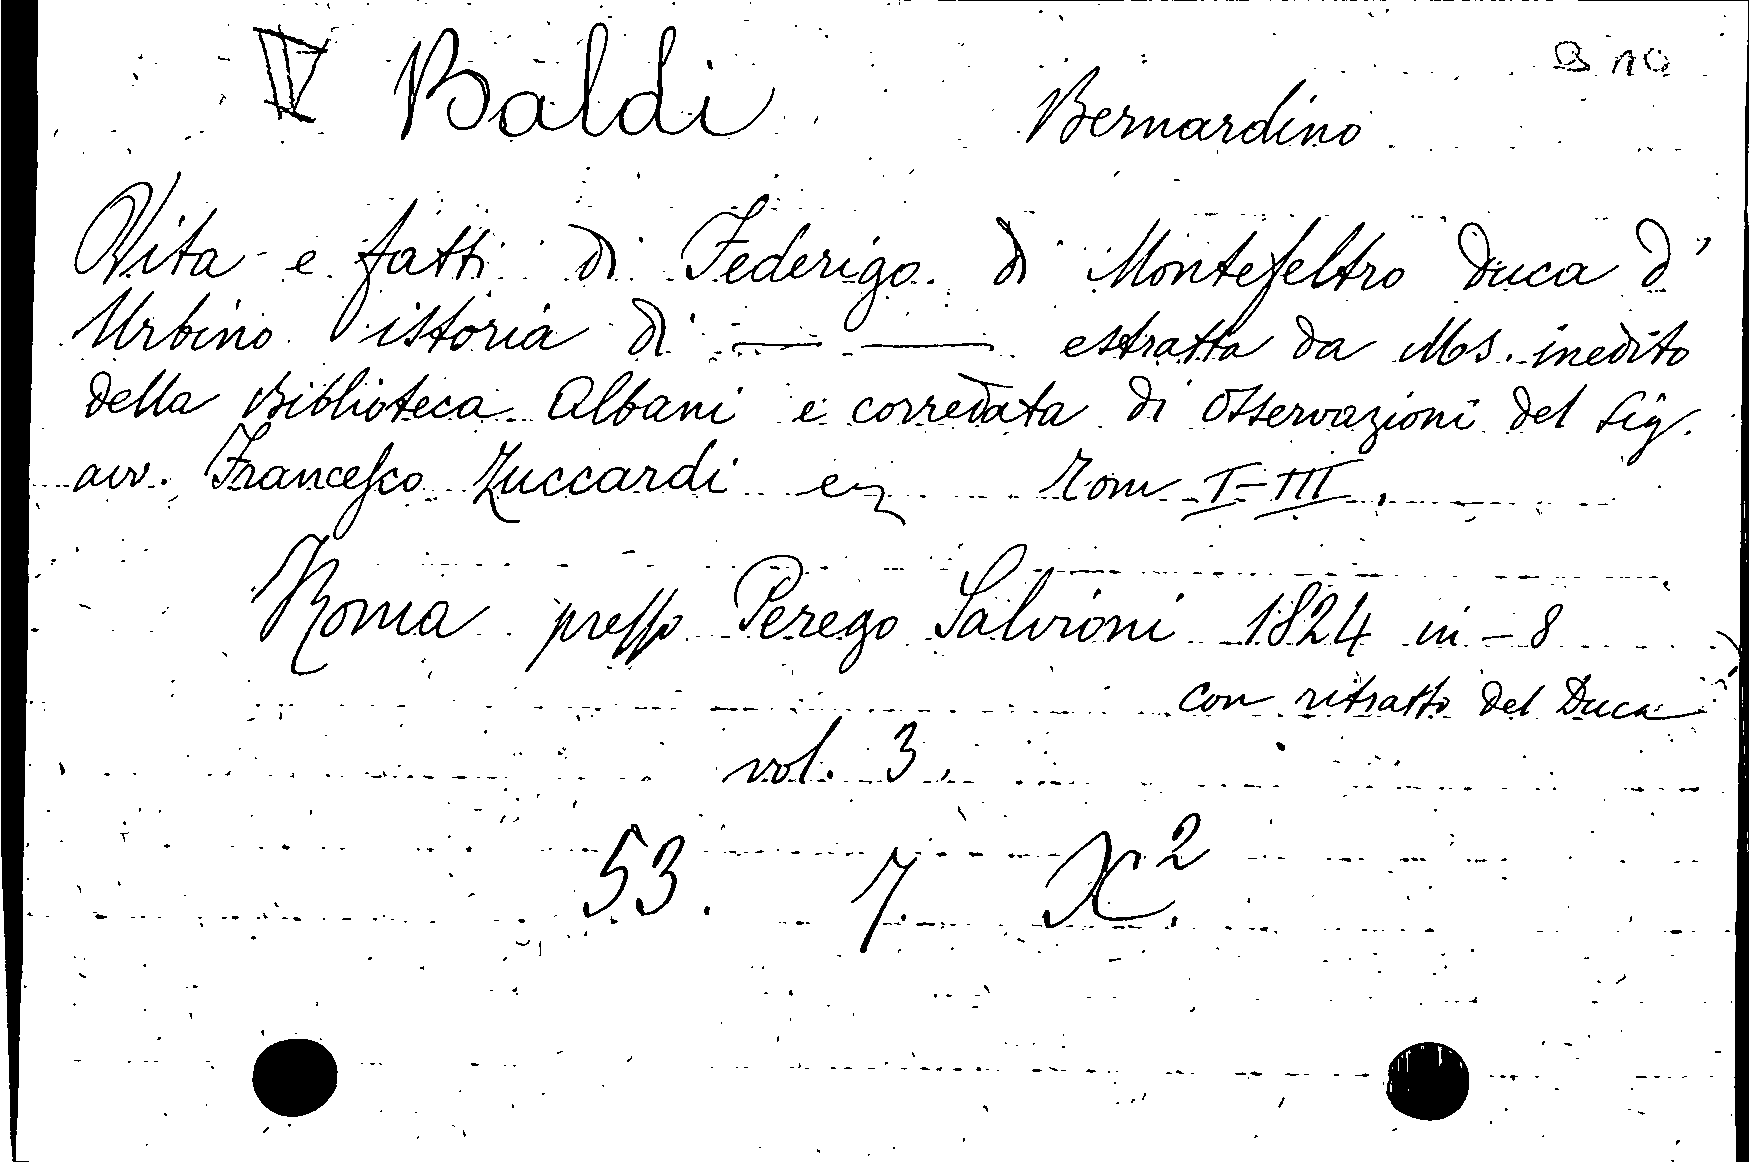 IV Baldi Bernardino
Vita e fatti di Federigo di Montefeltro Duca d'
Urbino istoria di — — estratta da Mos. inedito
della Biblioteca Albani e corredata di Osservazioni del Sig.
avv. Francesco Zuccardi Tom I-III.
Roma presso Perego Salvioni 1824 in-8
con ritratto del Duca
vol. 3.
53. 7. X².